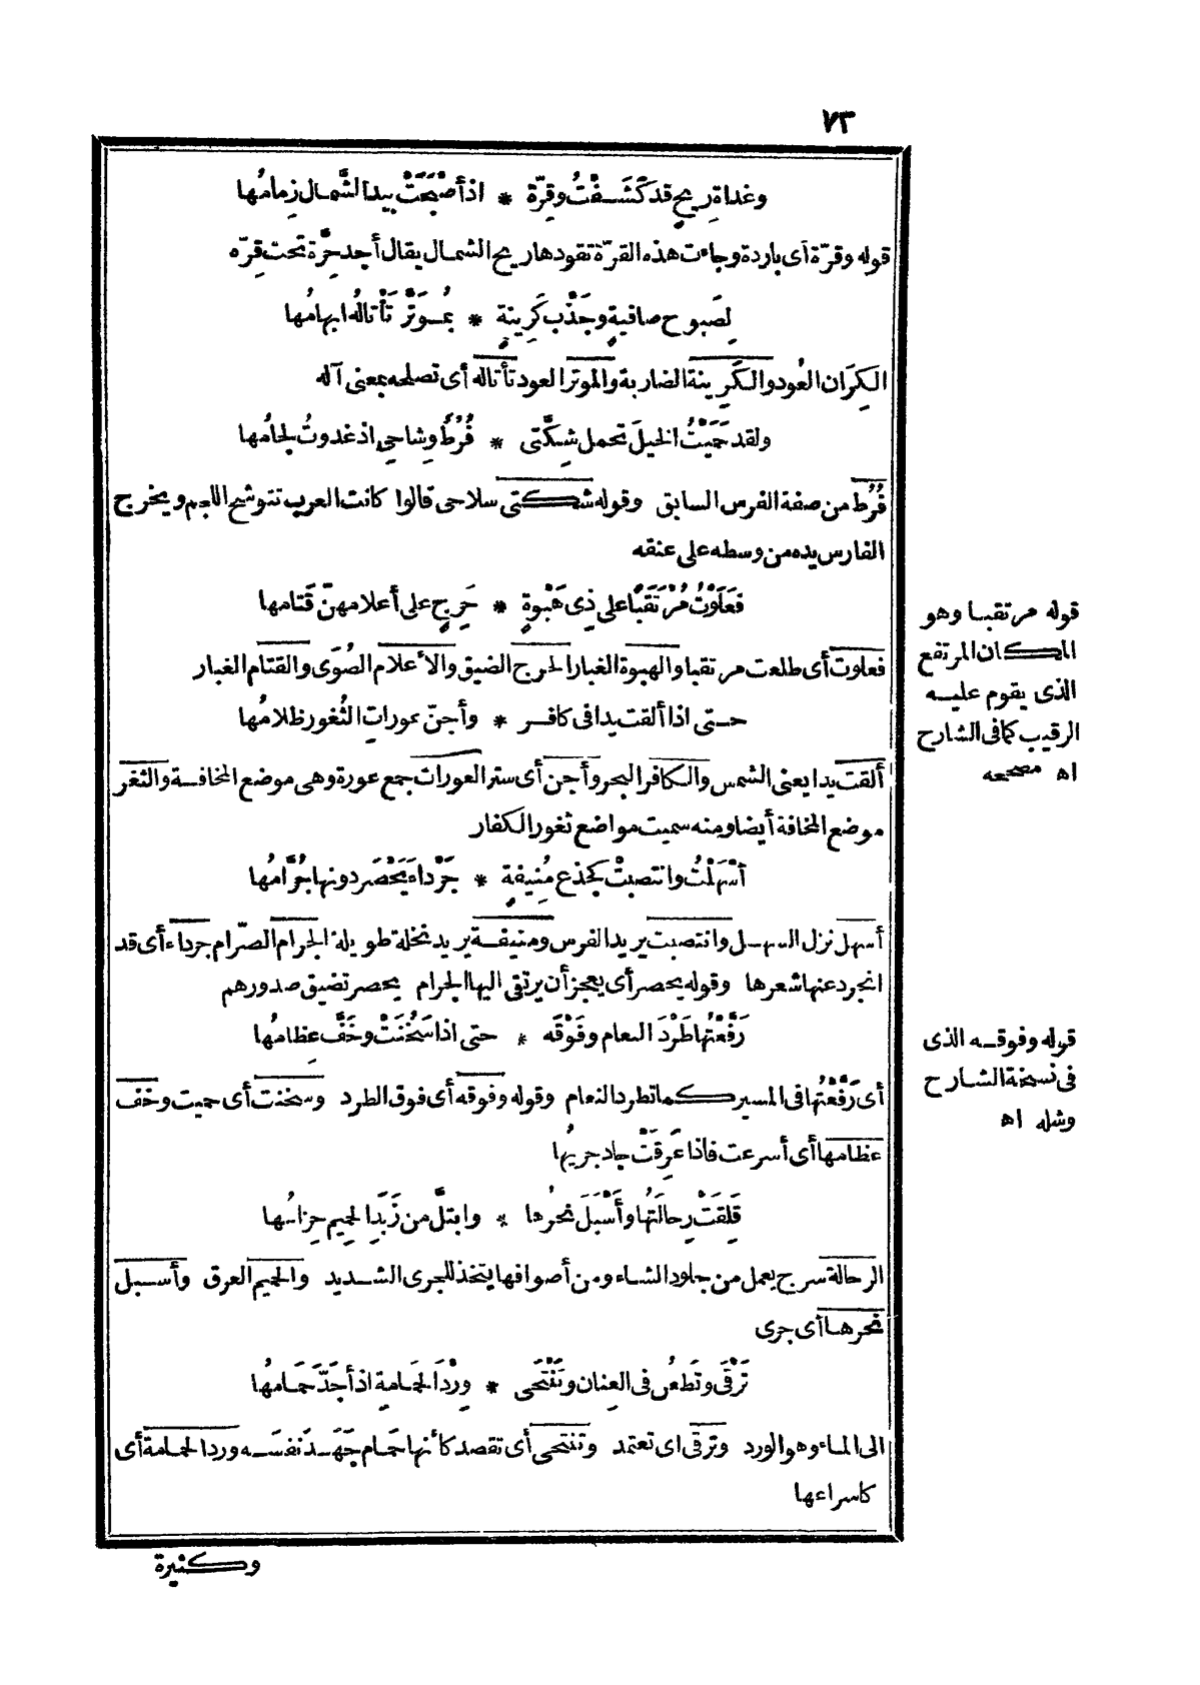 ٧٣
وغداةِ ريحٍ قد كَشَفْتُ وقِرّة * اذ أصْبَحَتْ بيد الشَّمال زِمامُها
قوله وقرّة أى باردة وجاءت هذه القرّة تقودها ريح الشمال يقال أجد حِرَّة تحت قِرّه
لِصَبوح صافيةٍ وجَذْب كَرِينةٍ * بمُوَتَّرٍ تَأْتالُه ابهامُها
الكِرَان العُود والكَرِينة الضاربة والموتر العود تأتاله أى تصلحه بمعنى آله
ولقد حَمَيْتُ الخيلَ تحمل شِكَّتى * فُرُطٌ وِشاحى اذ غدوتُ لجامُها
فُرُط من صفة الفرس السابق وقوله شكتى سلاحى قالوا كانت العرب تتوشح اللجم ويخرج
الفارس يده من وسطه على عنقه
فعَلَوْتُ مُرْتَقَبًا على ذِى هَبْوةٍ * حَرِجٍ على أعلامهنّ قَتامها
فعلوت أى طلعت مرتقبا والهبوة الغبار الحرج الضيق والأعلام الصُوَى والقتام الغبار
حتى اذا ألقت يدا فى كافر * وأجنّ عوراتِ الثُغور ظلامُها
ألقت يدا يعنى الشمس والكافر البحر وأجن أى ستر العورات جمع عورة وهى موضع المخافة والثغر
موضع المخافة أيضا ومنه سميت مواضع ثغور الكفار
أسْهَلْتُ وانتصبتْ كجذع مُنِيفةٍ * جَرْداءَ يَحْصَر دونها جُرَّامُها
أسهل نزل السهل وانتصبت يريد الفرس ومنيفة يريد نخلة طويلة الجرام الصّرام جرداء أى قد
انجرد عنها شعرها وقوله يحصر أى يعجز أن يرتقى اليها الجرام يحصر تضيق صدورهم
رَفَّعْتُها طَرْدَ النعام وفَوْقَه * حتى اذا سَخُنَتْ وخَفَّ عظامُها
أى رَفَّعْتُها فى المسير كما تطرد النعام وقوله وفوقه أى فوق الطرد وسخنت أى حميت وخف
عظامها أى أسرعت فاذا عَرِقَتْ جاد جريُها
قَلِقَتْ رِحالَتُها وأَسْبَلَ نحرُها * وابتلَّ من زَبَدِ الحَمِيم حِزامُها
الرحالة سرج يعمل من جلود الشاء ومن أصوافها يتخذ للجرى الشديد والحميم العرق وأسبل
نحرها أى جرى
تَرْقَى وتَطعُن فى العِنان وتَنْتَحى * وِرْدَ الحَمامةِ اذ أجَدَّ حَمَامُها
الى الماء وهو الورد وترقى اى تعتمد وتنتحى أى تقصد كأنها حَمَام جَهَد نَفسَه ورد الحمامة أى
كاسراعها
وكثيرة
قوله مرتقبا وهو
المكان المرتفع
الذى يقوم عليه
الرقيب كما فى الشارح
اه مصححه
قوله وفوقه الذى
فى نسخة الشارح
وشله اه